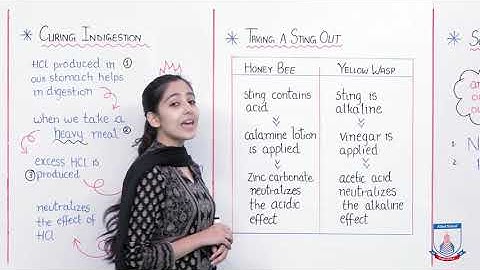 * CURING INDIGESTION
HCL produced in ①
our stomach helps
in digestion
when we take a
heavy meal ②
excess HCL is
③ produced
neutralizes
the effect of
HCl
* TAKING A STING OUT
HONEY BEE
sting contains
acid
calamine lotion
is applied
zinc carbonate
neutralizes
the acidic
effect
YELLOW WASP
sting is
alkaline
vinegar is
applied
acetic acid
neutralizes
the alkaline
effect
* S
an
ou
ou
1. N
2.
Allied School